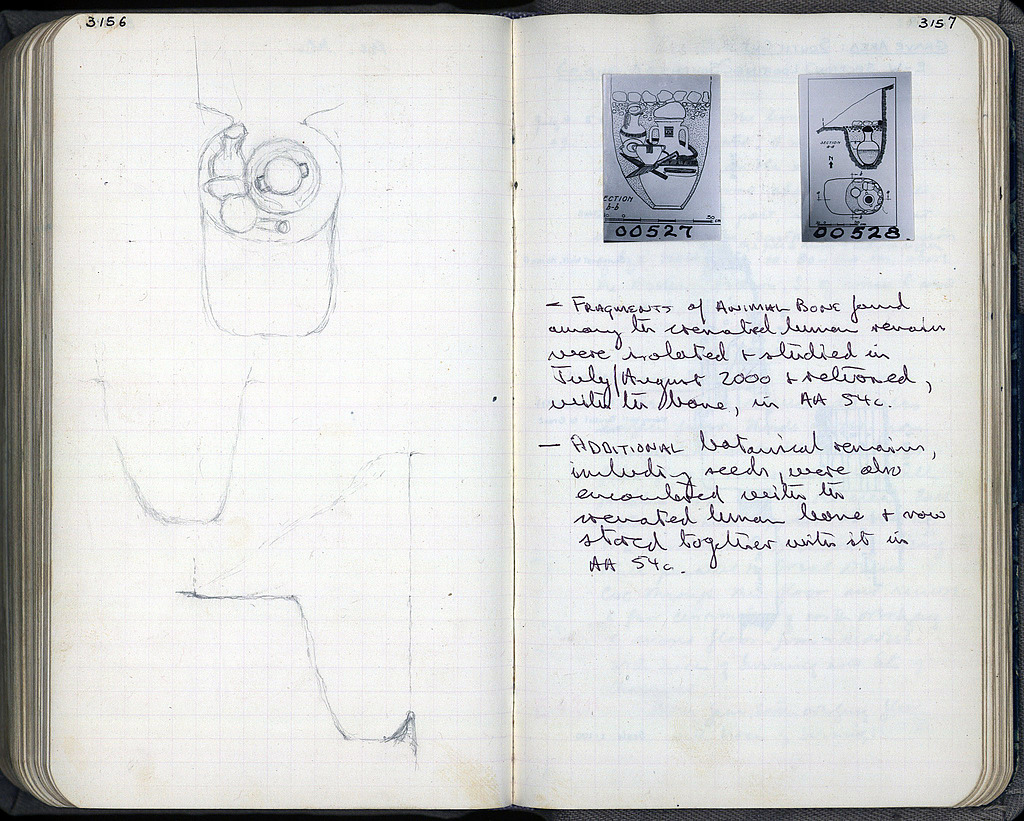 3156
3157
SECTION
b-b
0
50
cm
00527
SECTION
a-a
N
00528
– FRAGMENTS of ANIMAL BONE found
among the cremated human remain
were isolated + studied in
July/August 2000 + returned,
with the bone, in AA 54c.
– ADDITIONAL botanical remains,
including seeds, were also
encountered with the
cremated human bone + now
stored together with it in
AA 54c.